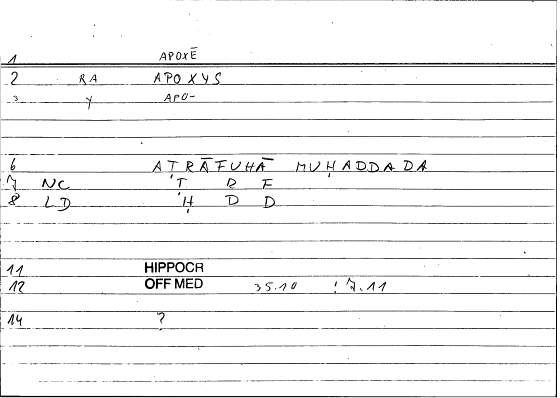 1 APOXĒ
2 RA APOXYS
3 Y APO-
6 AṬRĀFUHĀ MUḤADDADA
7 NC Ṭ R F
8 LD Ḥ D D
11 HIPPOCR
12 OFF MED 35.10 : 7.11
14 ?